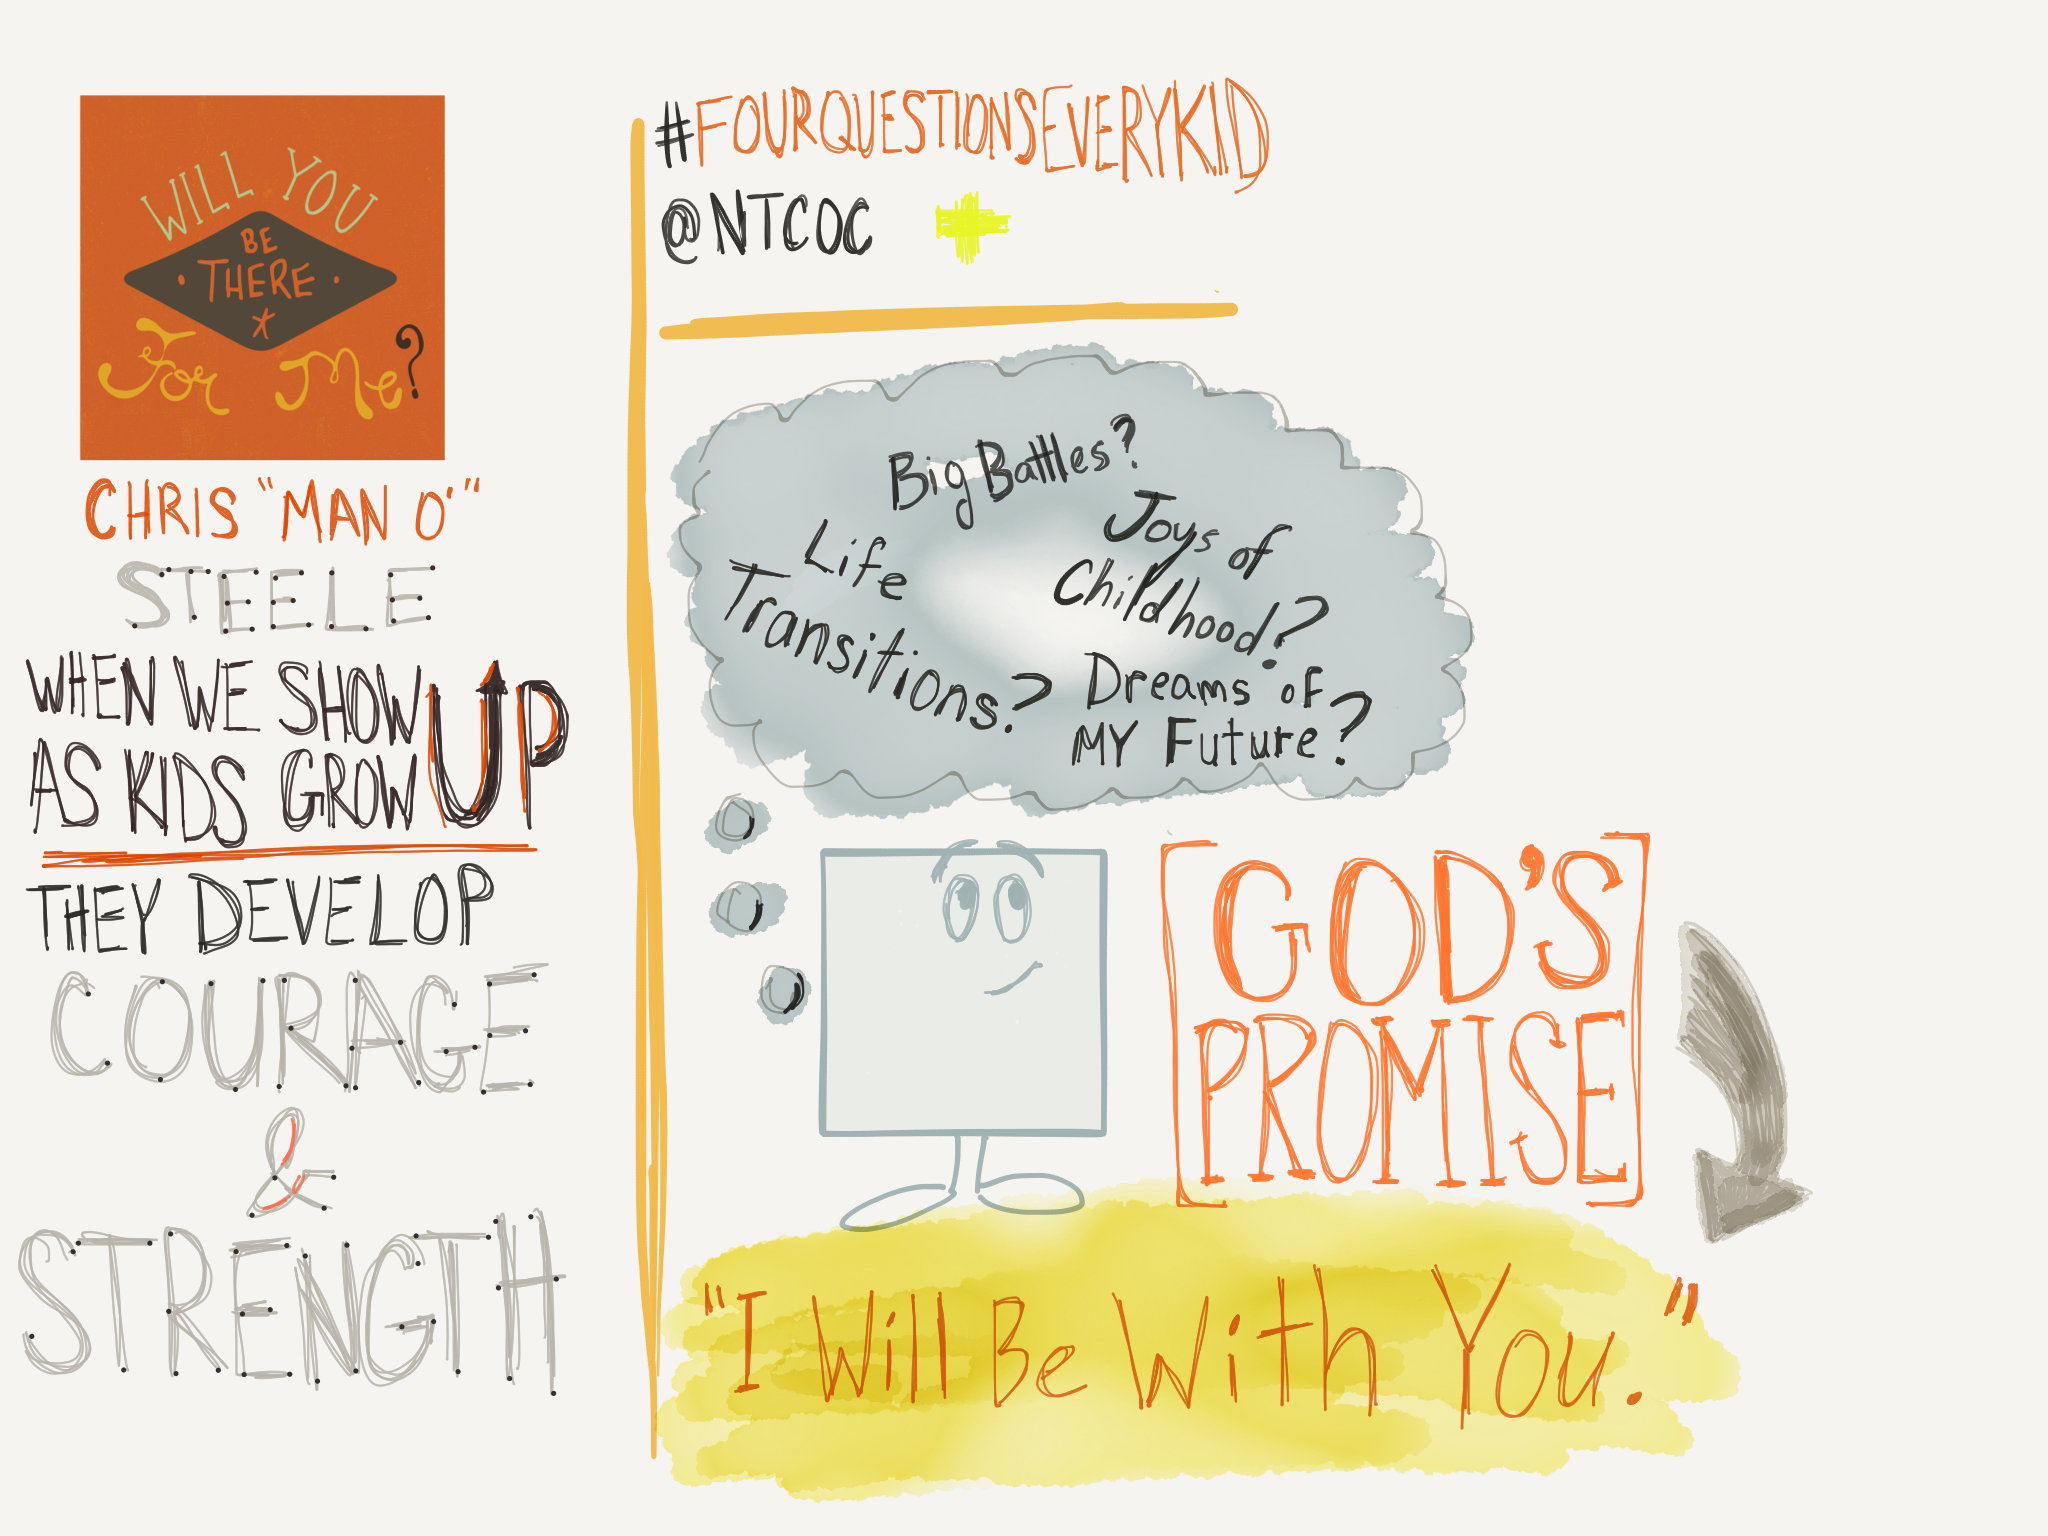 WILL YOU
BE
THERE
For Me?
CHRIS "MAN O'"
STEELE
WHEN WE SHOW UP
AS KIDS GROW
THEY DEVELOP
COURAGE
&
STRENGTH
#FOURQUESTIONSEVERYKID
@NTCOC
Big Battles?
Life
Transitions?
Joys of
Childhood?
Dreams of
MY Future?
GOD'S
PROMISE
"I Will Be With You."